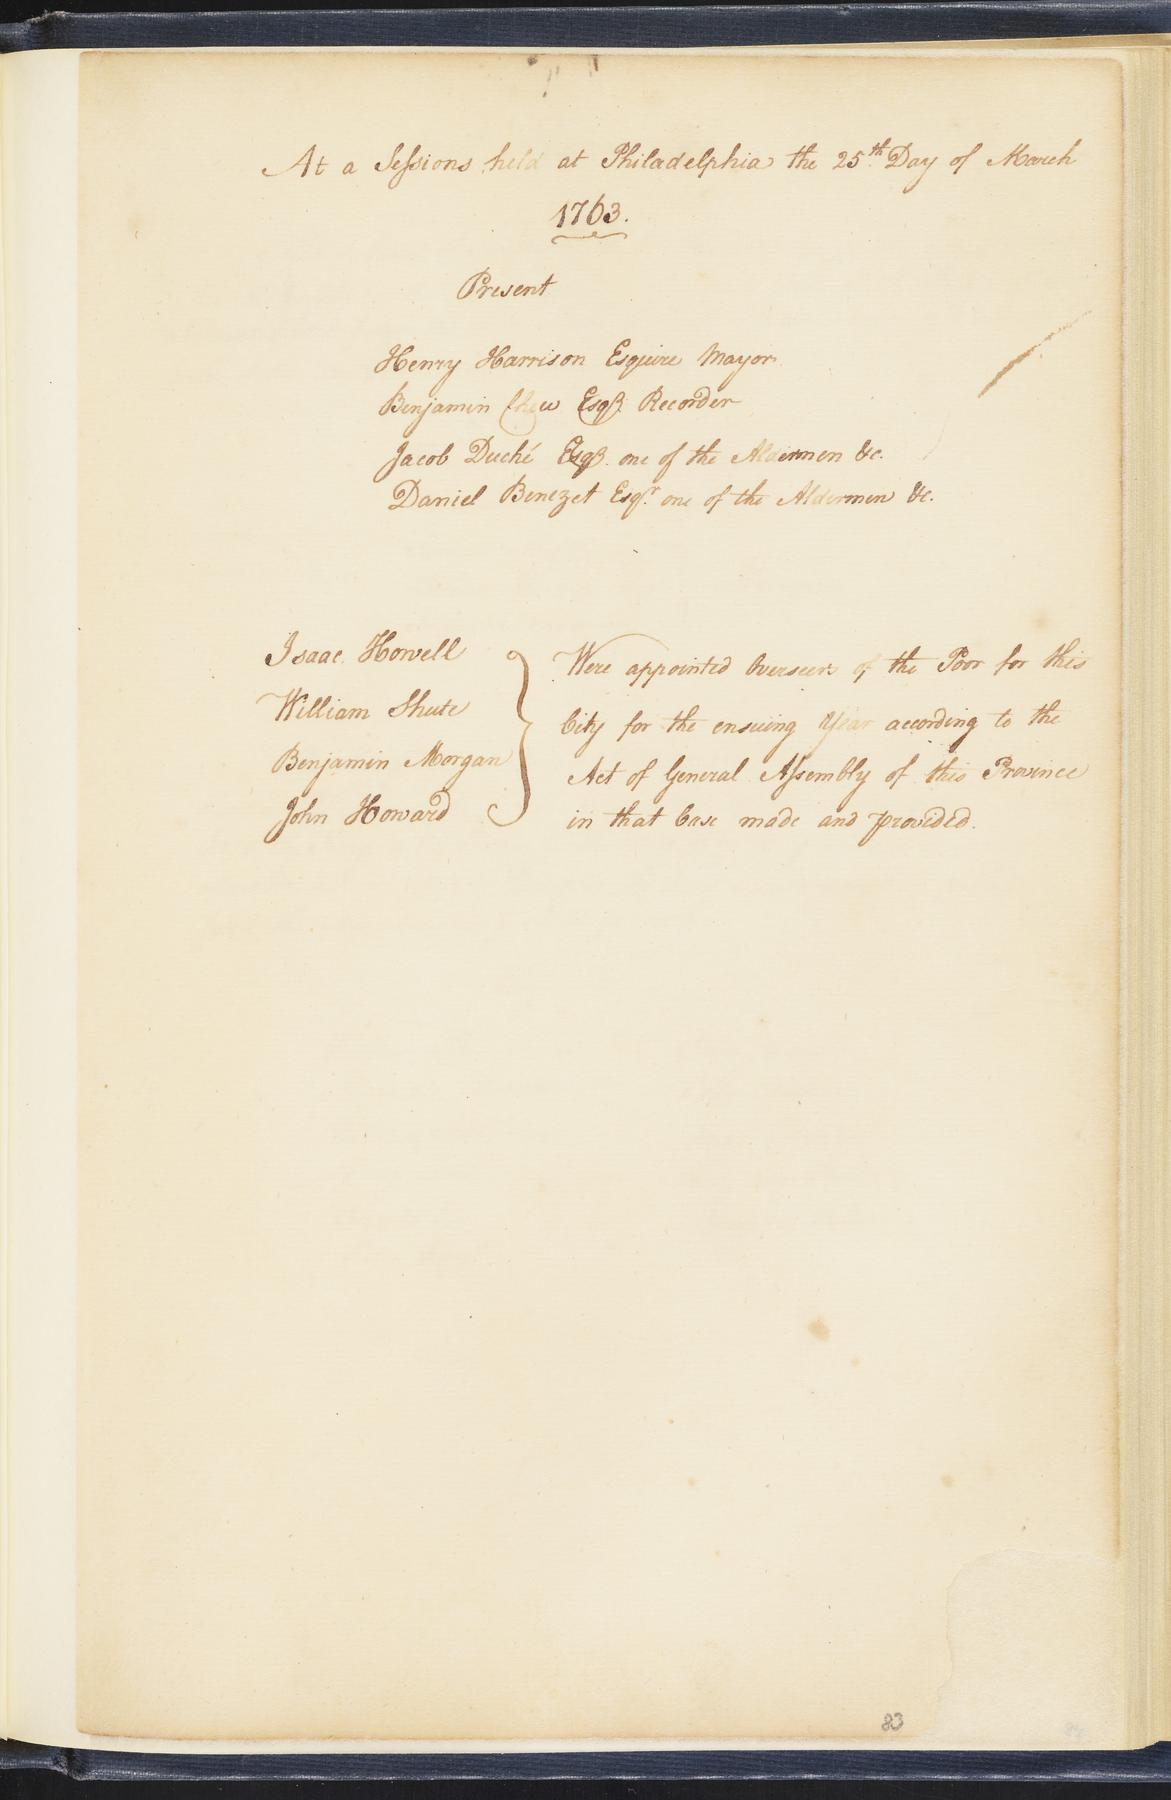 At a Sessions held at Philadelphia the 25th Day of March
1763.
Present
Henry Harrison Esquire Mayor
Benjamin Chew Esqr. Recorder
Jacob Duché Esqr. one of the Aldermen &c.
Daniel Benezet Esqr. one of the Aldermen &c.
Isaac Howell
William Shute
Benjamin Morgan
John Howard
Were appointed Overseers of the Poor for this
City for the ensuing Year according to the
Act of General Assembly of this Province
in that Case made and provided.
83